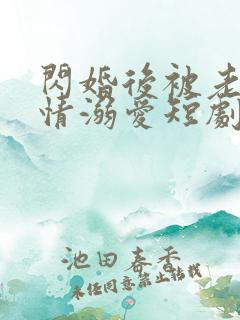 閃婚後被老
情溺愛短劇
池田春香
未经同意禁止转载